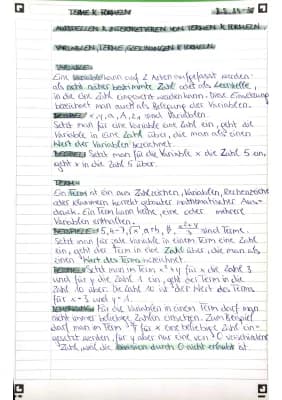 TERME & FORMELN
AUFSTELLEN & INTERPRETIEREN VON TERMEN & FORMELN
VARIABLEN, TERME, GLEICHUNGEN & FORMELN
VARIABLE:
Eine Variable kann auf 2 Arten aufgefasst werden:
als nicht näher bestimmte Zahl oder als Leerstelle,
in die eine Zahl eingesetzt werden kann. Diese Einsetzung
bezeichnet man auch als Belegung der Variablen.
BEISPIEL: x, y, a, A, z₁ sind Variablen
Setzt man für eine Variable eine Zahl ein, geht die
Variable in eine Zahl über, die man als einen
Wert der Variablen bezeichnet.
BEISPIEL: Setzt man für die Variable x die Zahl 5 ein,
geht x in die Zahl 5 über.
TERM:
Ein Term ist ein aus Zahlzeichen, Variablen, Rechenzeichen
oder Klammern korrekt gebauter mathematischer Aus-
druck. Ein Term kann keine, eine oder mehrere
Variablen enthalten.
sind Terme.
Setzt man für jede Variable in einem Term eine Zahl
ein, geht der Term in eine Zahl über, die man als
einen Wert des Terms bezeichnet.
BEISPIEL: Setzt man im Term x²+y für x die Zahl 3
und für y die Zahl 1 ein, geht der Term in die
Zahl 10 über. Die Zahl 10 ist der Wert des Terms
für x=3 und y=1.
BEMERKUNG: Für die Variablen in einem Term darf man
nicht immer beliebige Zahlen einsetzen. Zum Beispiel
darf man im Term für x eine beliebige Zahl ein-
gesetzt werden, für y aber nur eine von 0 verschiedene
Zahl, weil die Division durch 0 nicht erlaubt ist.